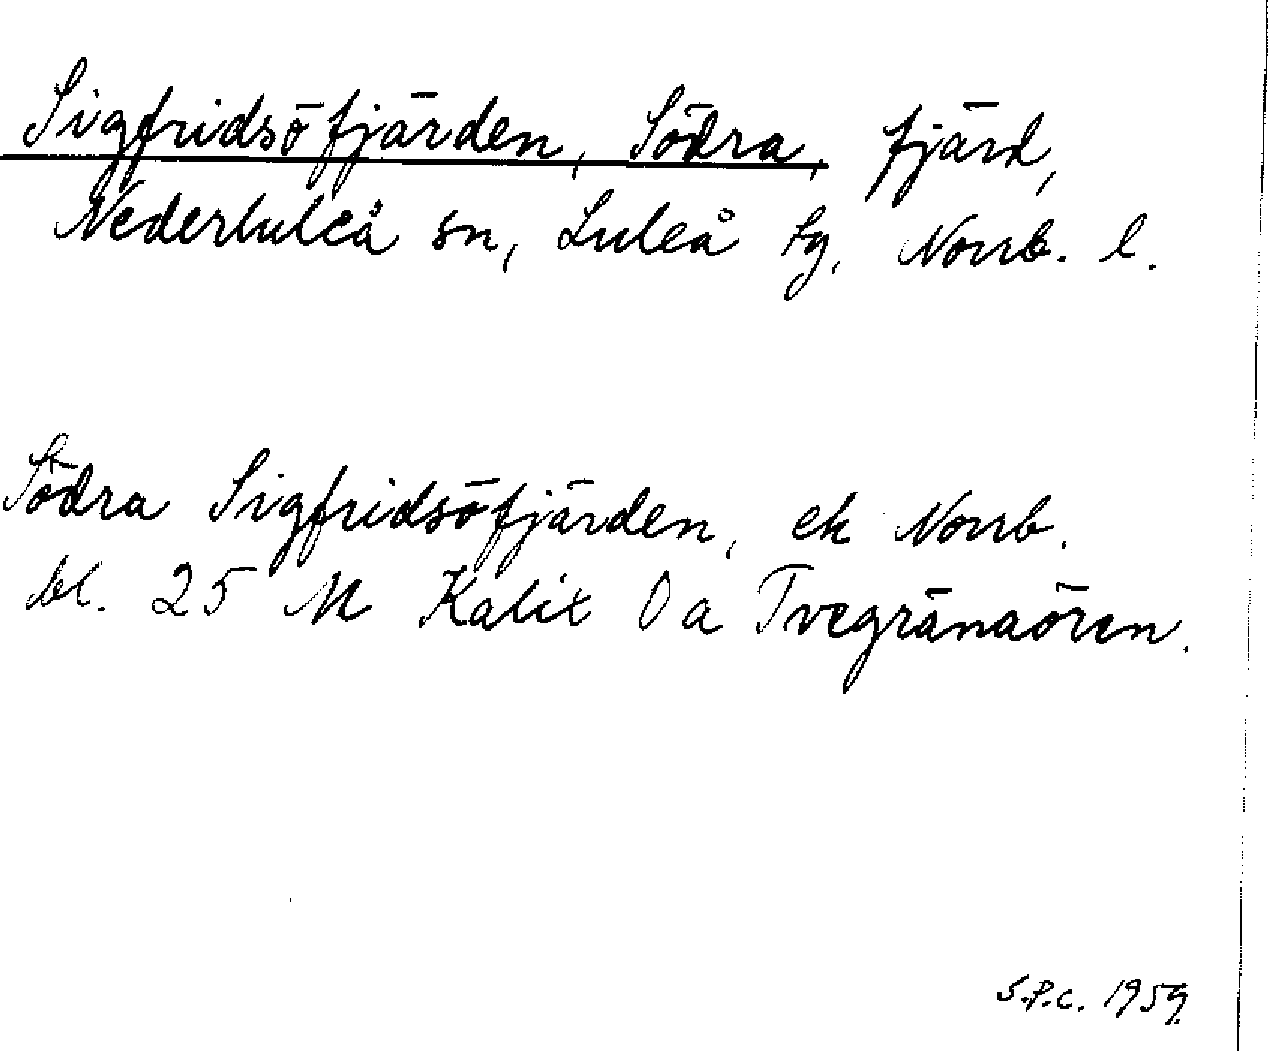 Sigfridsöfjärden, Södra, fjärd,
Nederluleå sn, Luleå tg, Norrb. l.
Södra Sigfridsöfjärden, ek Norrb.
bl. 25 N Kalix O a Tvegränaören.
S.P.C. 1959.